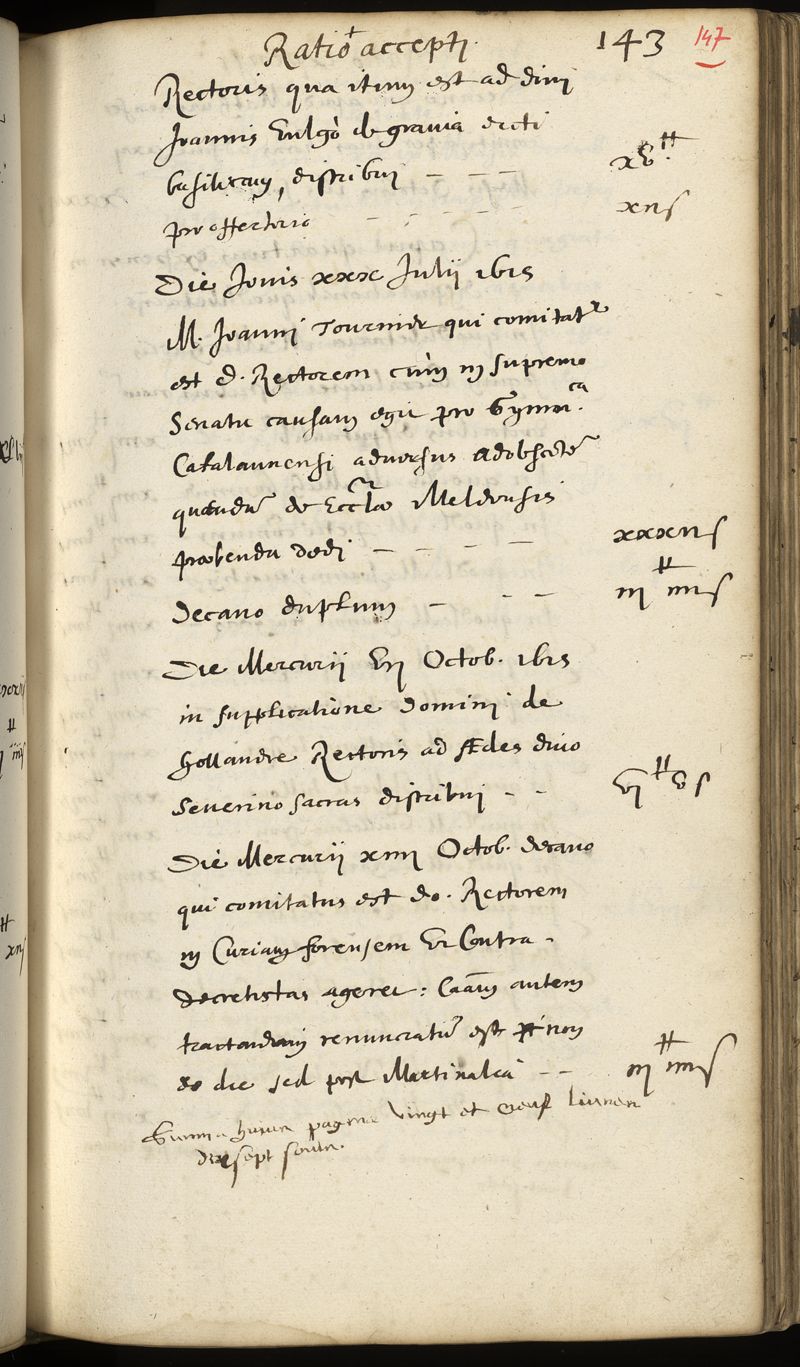 Ratio accepti 143 147
Rectoris qua itum est ad divi
Joannis vulgò de gravia dicti
basilicam, distribui - - - xv ᵗᵗ
pro offertorio - - - - - xiis
Die Jovis xxx Julii 1615
M. Joanni Tournier qui comitatᵉ
est d. Rectorem cùm in supremo
Senatu causam egit pro Gymn.ca
Catalaunensi adversus
de Eccla Meldensis
præbenda dedi - - - - xxxiis
Decano duplum - - - iii ᵗᵗ iiiis
Die Mercurii vii Octob. 1615
in supplicatione Domini de
Hollandre Rectoris ad Ædes divo
Severino sacras distribui - - vi ᵗᵗ vs
Die Mercurii xiiii Octob. decano
qui comitatus est do. Rectorem
in Curiam forensem ut Contra
decretistas ageret: Caām autem
tractandam renunciatū est non
eo die sed post Martinalia - - iii ᵗᵗ iiiis
Summa huius pagine Vingt et neuf livres
dixsept soulz.